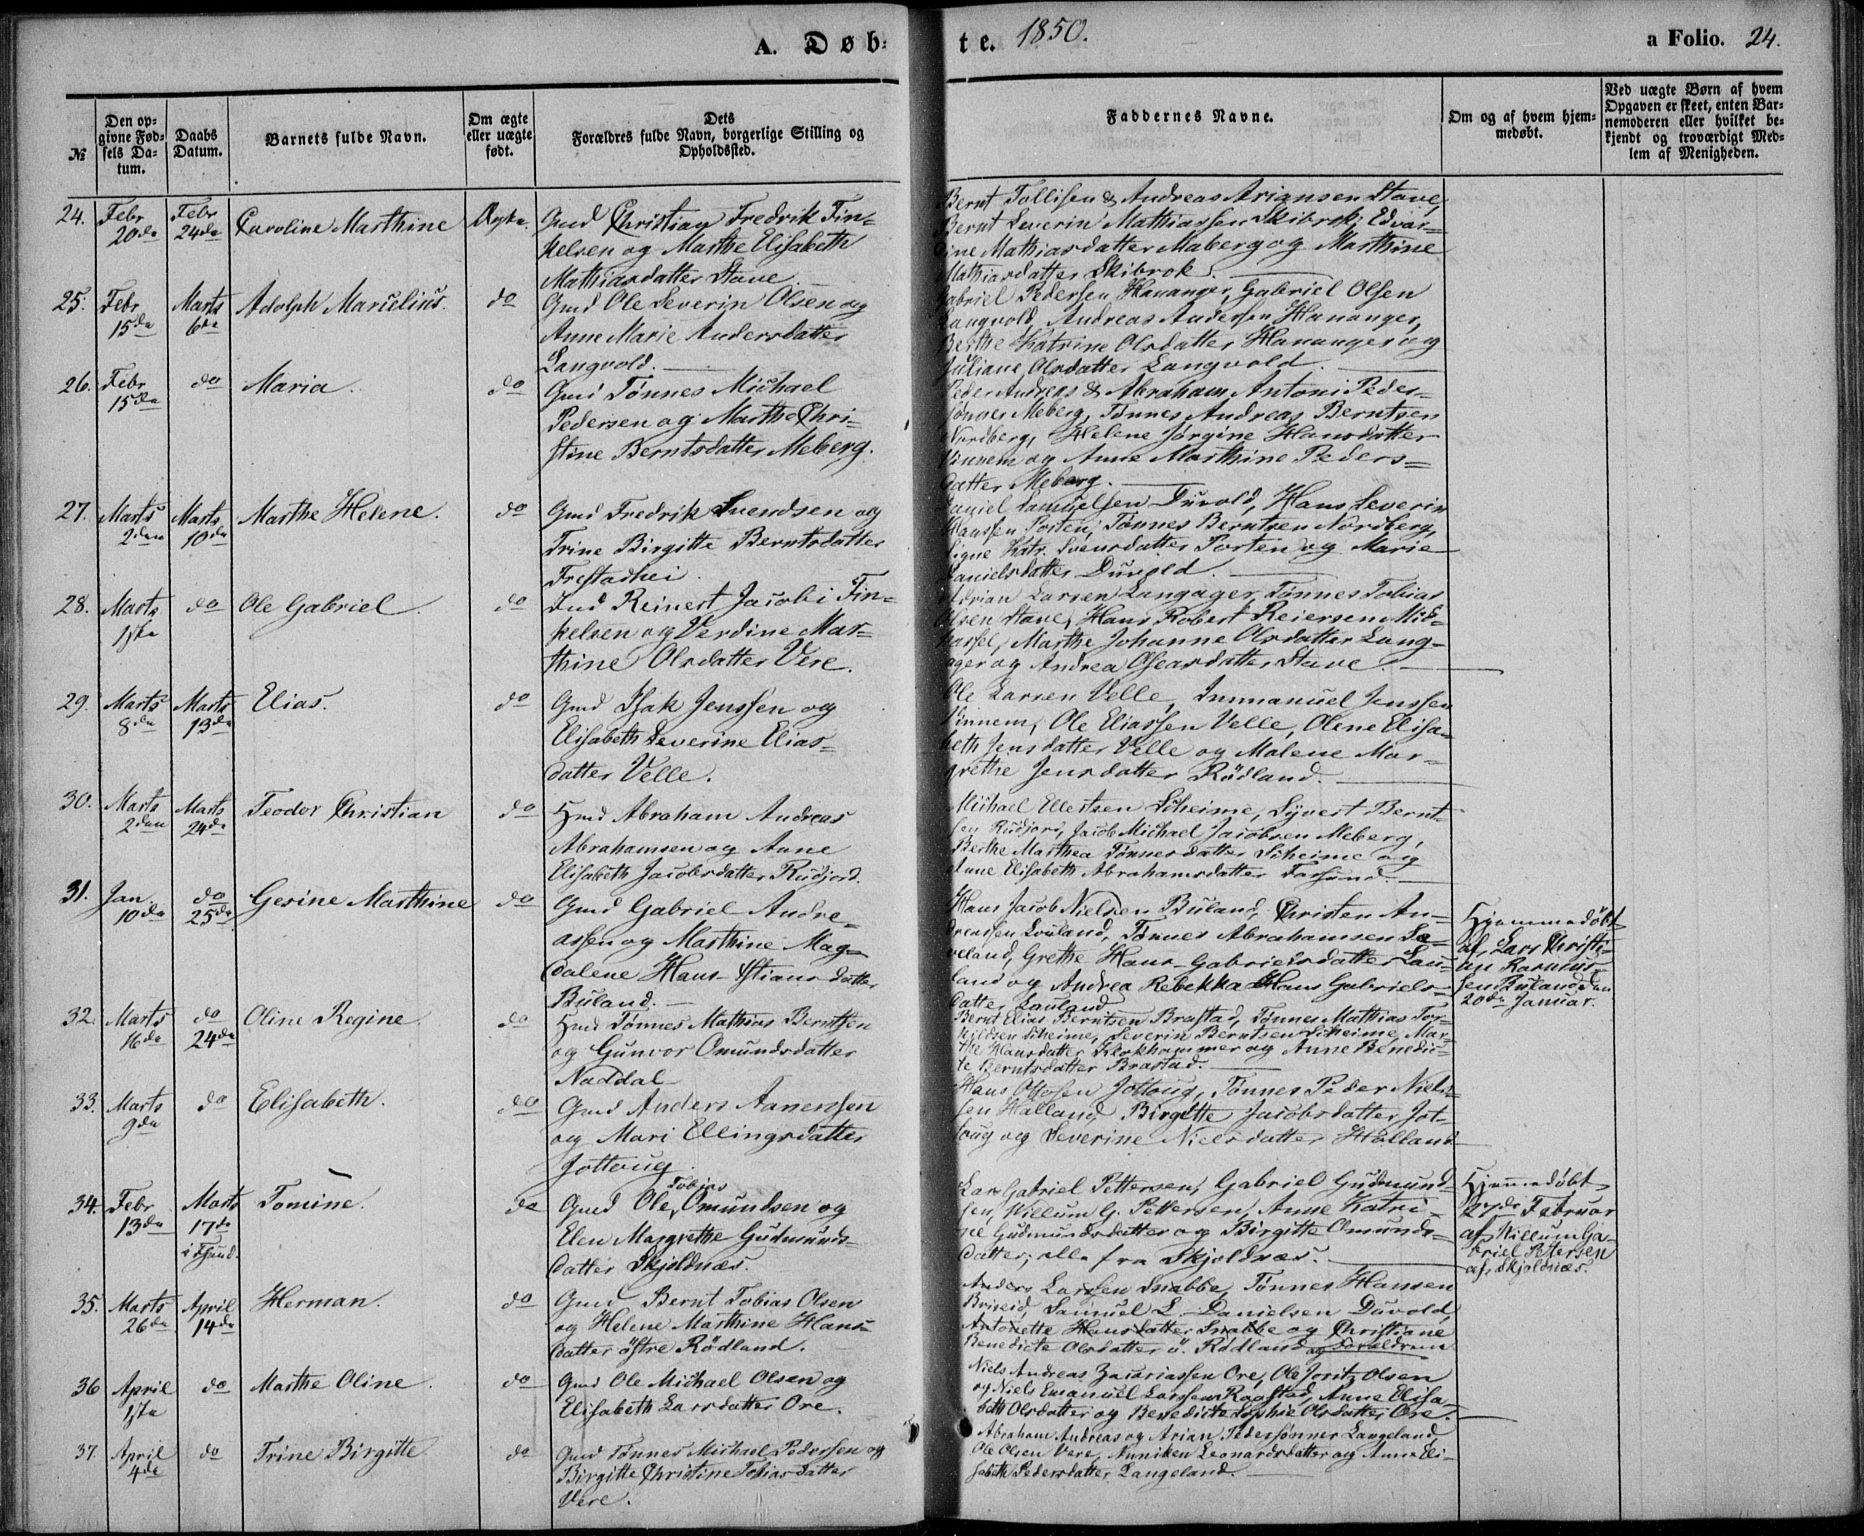 A. Døb-
te. 1850.
a Folio. 24.
№
Den op-
givne Fød-
sels Da-
tum.
Daabs
Datum.
Barnets fulde Navn.
Om ægte
eller uægte
født.
Dets
Forældres fulde Navn, borgerlige Stilling og
Opholdssted.
Faddernes Navne.
Om og af hvem hjem-
medøbt.
Ved uægte Børn af hvem
Opgaven er skeet, enten Bar-
nemoderen eller hvilket be-
kjendt og troværdigt Med-
lem af Menigheden.
24. Febr 20de Febr 24de Caroline Marthine Ægte.
Gmd Christian Fredrik Tin-
kelsen og Marthe Elisabeth
Mathiasdatter Stave
Bernt Tollisen & Andreas Ariansen Stave,
Bernt Severin Mathiassen Skibrok, Edvar-
dine Mathiasdatter Maberg og Marthine
Mathiasdatter Skibrok.
25. Febr 15de Marts 6de Adolph Marcelius. do
Gmd Ole Severin Olsen og
Anne Marie Andersdatter
Langvold.
Gabriel Pedersen Hananger, Gabriel Olsen
Langvold, Andreas Andersen Hananger,
Berthe Katrine Olsdatter Hananger og
Juliane Olsdatter Langvold.
26. Febr 15de do Maria. do
Gmd Tønnes Michael
Pedersen og Marthe Chri-
stine Berntsdatter Meberg.
Peder Andreas & Abraham Antoni Peder-
sønner Meberg, Tønnes Andreas Berntsen
Nordberg, Helene Jørgine Hansdatter
Vinnem og Anne Marthine Peders-
datter Meberg.
27. Marts 2den Marts 10de Marthe Helene. do
Gmd Fredrik Svendsen og
Trine Birgitte Berntsdatter
Frestadhei.
Daniel Samuelsen Duvold, Hans Severin
Hanssen Porten, Tønnes Berntsen Nordberg,
Signe Katr. Svensdatter Porten og Marie
Danielsdatter Duvold.
28. Marts 1ste do Ole Gabriel. do
Ind Reinert Jacobi Tin-
kelsen og Verdine Mar-
thine Olsdatter Vere.
Adrian Larsen Langager, Tønnes Tobias
Olsen Stave, Hans Robert Reiersen Mid-
hassel, Marthe Johanne Olsdatter Lang-
ager og Andrea Osearsdatter Stave.
29. Marts 8de Marts 13de Elias. do
Gmd Isak Jenssen og
Elisabeth Severine Elias-
datter Velle.
Ole Larsen Velle, Immanuel Jenssen
Vinnem, Ole Eliassen Velle, Olene Elisa-
beth Jensdatter Velle og Malene Mar-
grethe Jensdatter Rödland.
30. Marts 2den Marts 24de Teodor Christian do
Hmd Abraham Andreas
Abrahamsen og Anne
Elisabeth Jacobsdatter Rudjord.
Michael Ellertsen Siheime, Syvert Bernt-
sen Rudjord, Jacob Michael Jacobsen Meberg,
Berthe Marthea Tønnesdatter Siheime og
Anne Elisabeth Abrahamsdatter Farsund.
31. Jan. 10de do 25de Gesine Marthine do
Gmd Gabriel Andre-
assen og Marthine Mag-
dalene Hans Christiansdatter
Buland.
Hans Jacob Nielsen Buland, Christen An-
dreassen Louland, Tønnes Abrahamsen Sæ-
veland, Grethe Hans-Gabrielsdatter Lau-
land og Andrea Rebekka Hans Gabriels-
datter Lauland
Hjemmedøbt
af Lars Christi-
an Rasmus-
sen Buland den
20de Januar.
32. Marts 16de do 24de Oline Regine. do
Hmd Tønnes Mathias Berntsen
og Gunvor Omundsdatter
Naddal
Bernt Elias Berntsen Brastad, Tønnes Mathias Tor-
kildsen Siheime, Severin Berntsen Siheime, Mar-
the Hansdatter Klokhammer og Anne Benedic-
te Berntsdatter Brastad.
33. Marts 9de do Elisabeth. do
Gmd Anders Aanensen
og Mari Ellingsdatter
Jottoug.
Hans Ottosen Jottoug, Tønnes Peder Niels-
sen Holland, Birgitte Jacobsdatter Jot-
toug og Severine Nielsdatter Holland
34. Febr 13de Marts 17de i Fsund. Tomine. do
Gmd Ole Tobias Omundsen og
Elen Margrethe Gudmunds-
datter Skjoldnæs.
Lars Gabriel Pettersen, Gabriel Gudmund-
sen, Willum G. Pettersen, Anne Katri-
ne Gudmundsdatter og Birgitte Omunds-
datter, alle fra Skjoldnæs.
Hjemmedøbt
27de Februar
af Willum Ga-
briel Petersen
af Skjoldnæs.
35. Marts 26de April 14de Herman. do
Gmd Bernt Tobias Olsen
og Helene Marthine Hans-
datter östre Rödland.
Anders Larsen Snabbe, Tønnes Hansen
Briseid, Samuel L. Danielsen Duvold,
Antonette Hansdatter Snabbe og Christiane
Benedicte Olsdatter ö. Rödland og Forældrene
36 April 1ste do Marthe Oline. do
Gmd Ole Michael Olsen og
Elisabeth Larsdatter Ore.
Niels Andreas Zacariassen Ore, Ole Joritz Olsen
og Niels Emanuel Larssen Ragstad, Anne Elisa-
beth Olsdatter og Benedicte Sophie Olsdatter Ore.
37. April 4de do Trine Birgitte do
Gmd Tønnes Michael Pedersen og
Birgitte Christine Tobiasdatter
Vere.
Abraham Andreas og Arian Pedersønner Langeland,
Ole Olsen Vere, Anniken Leonardsdatter og Anne Eli-
sabeth Pedersdatter Langeland.